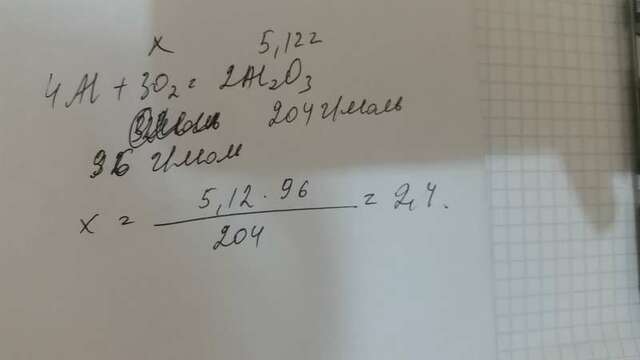 x 5,12г
4Al + 3O₂ = 2Al₂O₃
204 г/моль
96 г/мол
x = 5,12 · 96 / 204 = 2,4.